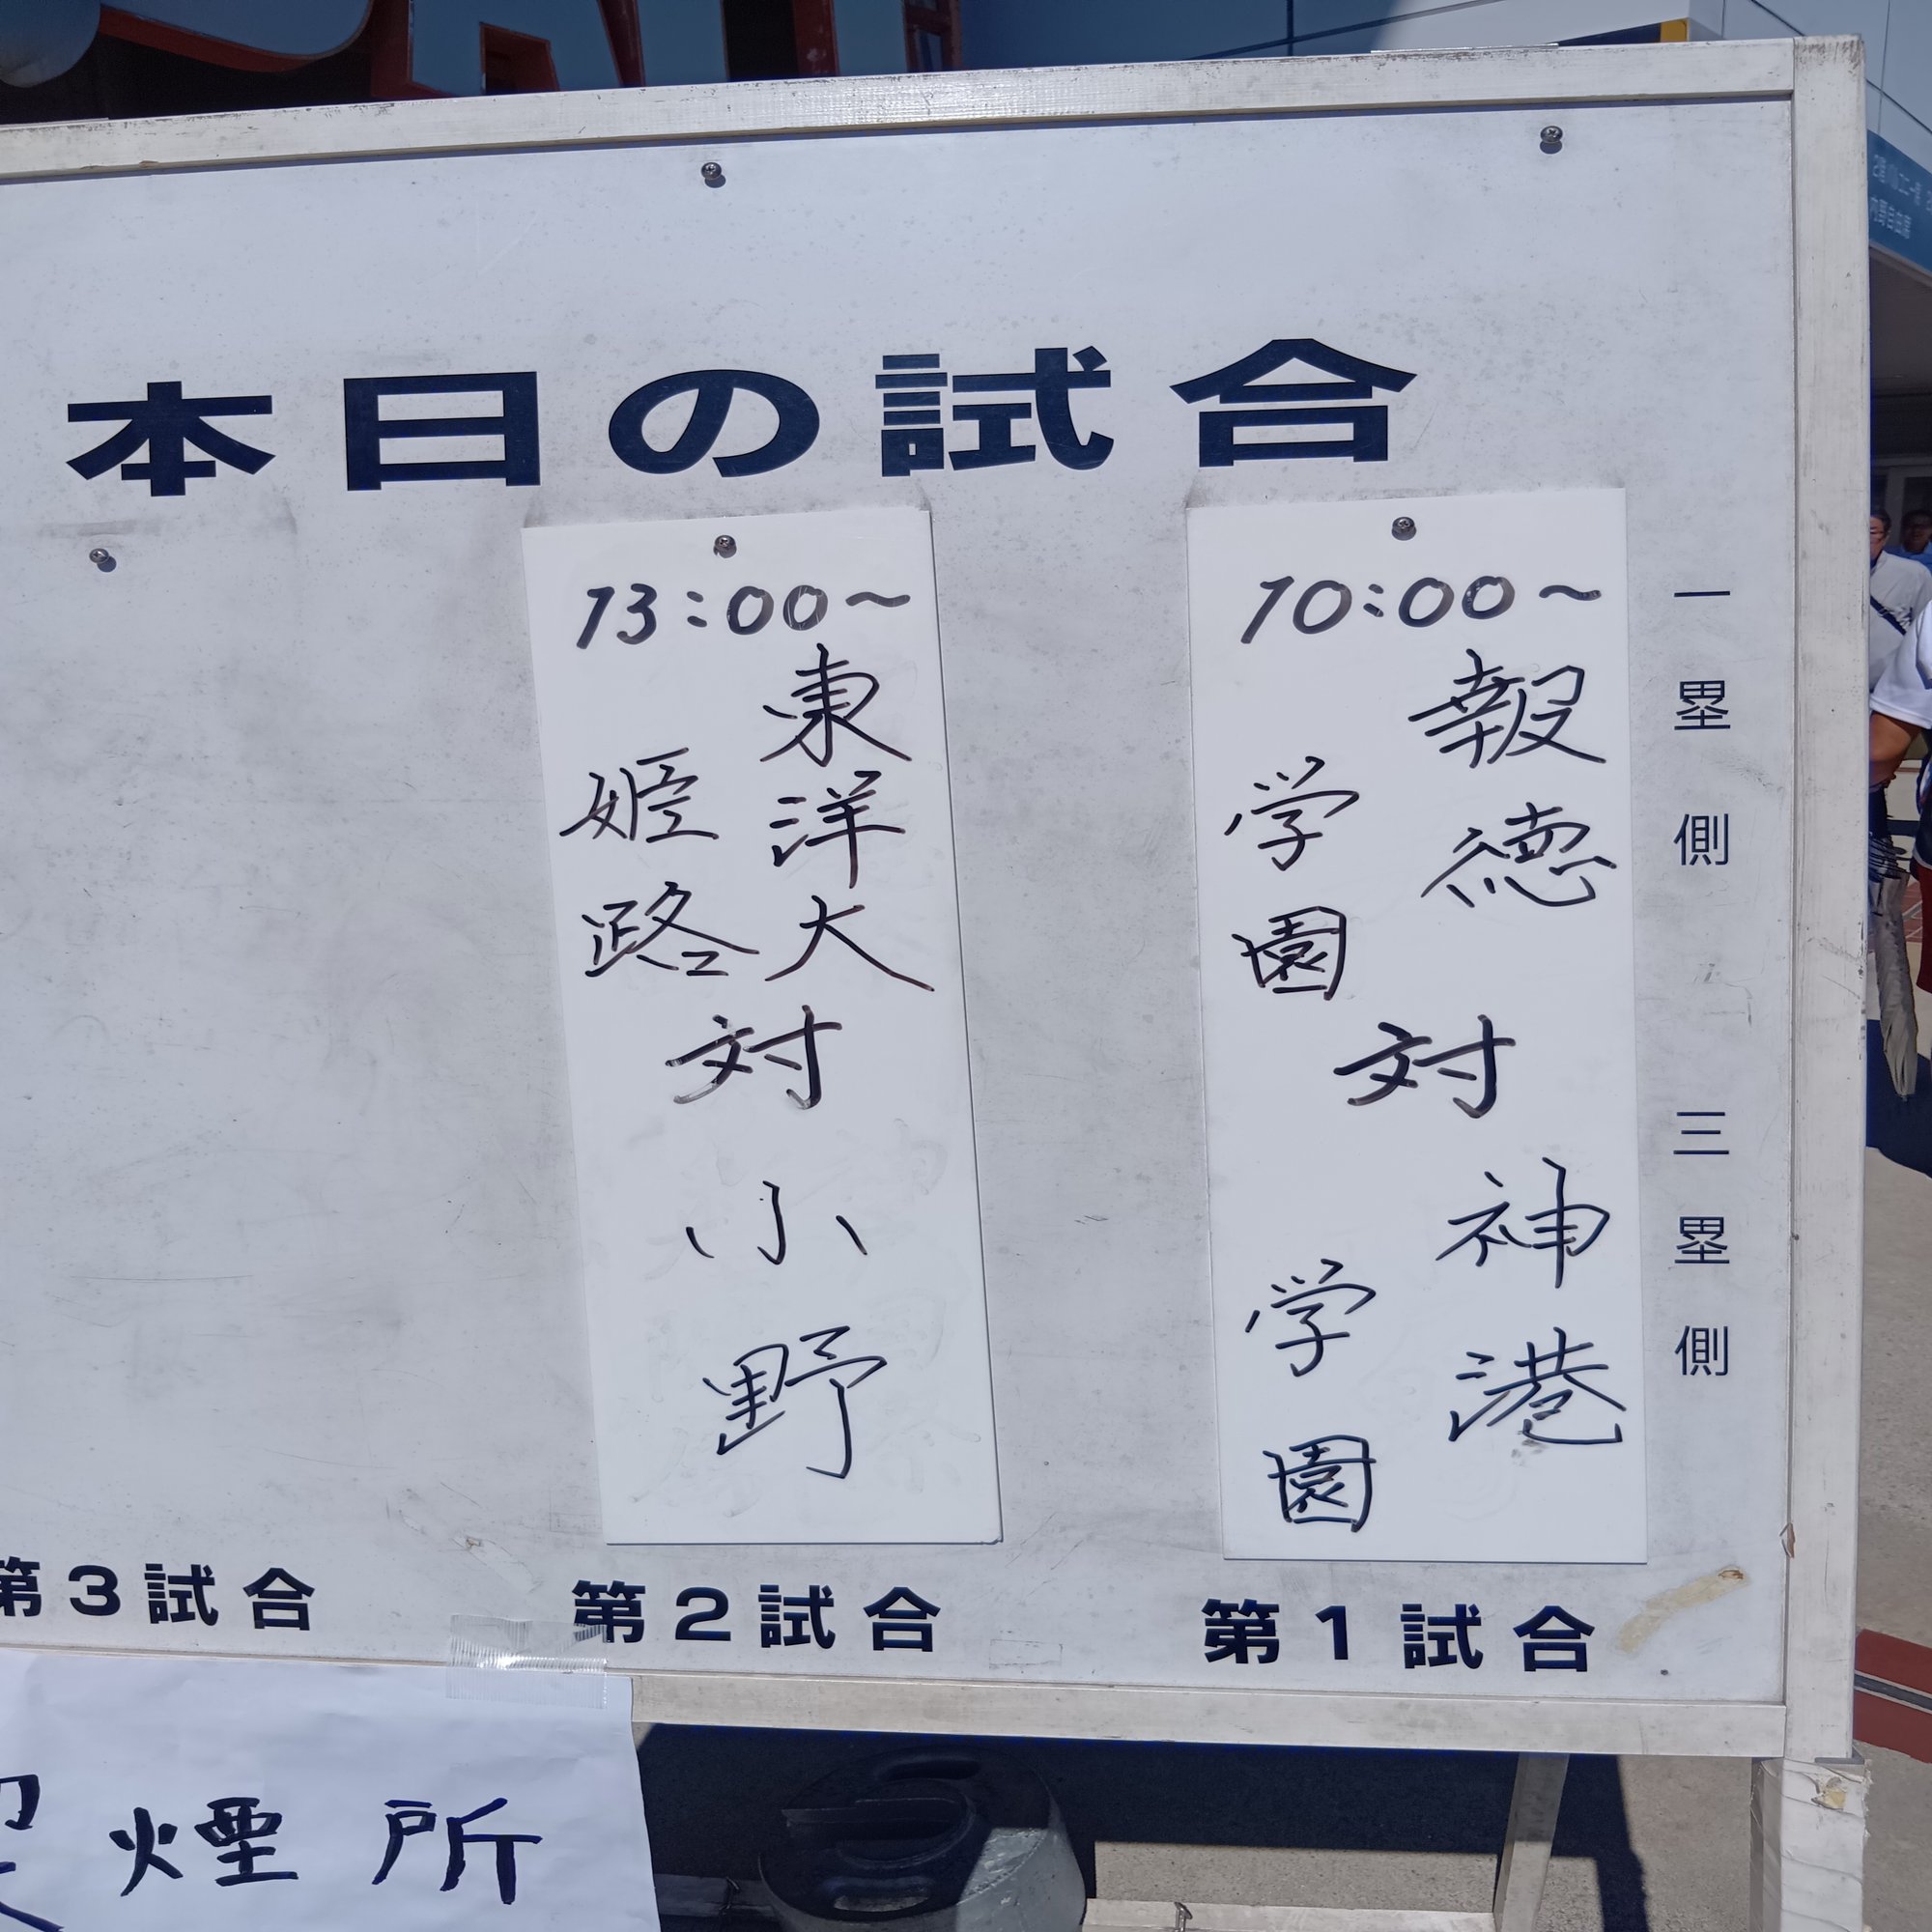 本日の試合
一塁側
三塁側
10:00～
報徳
学園
対
神港
学園
第1試合
13:00～
東洋大
姫路
対
小野
第2試合
第3試合
喫煙所
内野自由席